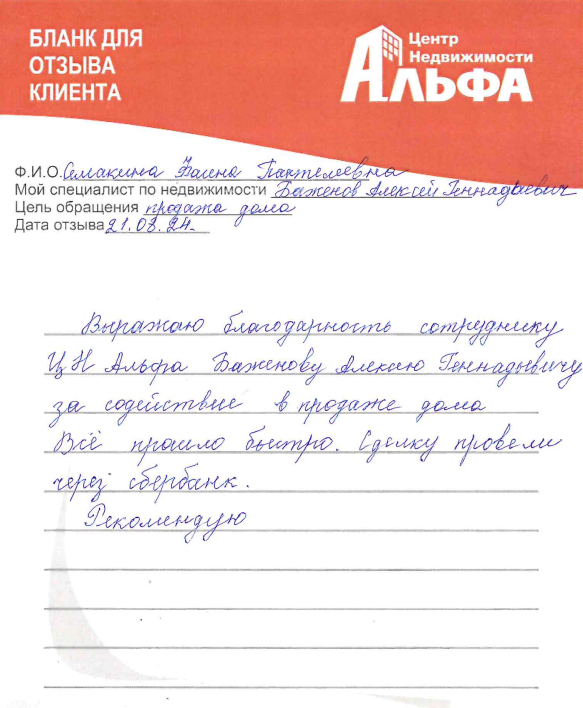 БЛАНК ДЛЯ
ОТЗЫВА
КЛИЕНТА
Центр
Недвижимости
АЛЬФА
Ф.И.О. Семакина Фаина Пантелеевна
Мой специалист по недвижимости Баженов Алексей Геннадьевич
Цель обращения продажа дома
Дата отзыва 21.08.24.
Выражаю благодарность сотруднику
ЦН Альфа Баженову Алексею Геннадьевичу
за содействие в продаже дома
Всё прошло быстро. Сделку провели
через сбербанк.
Рекомендую